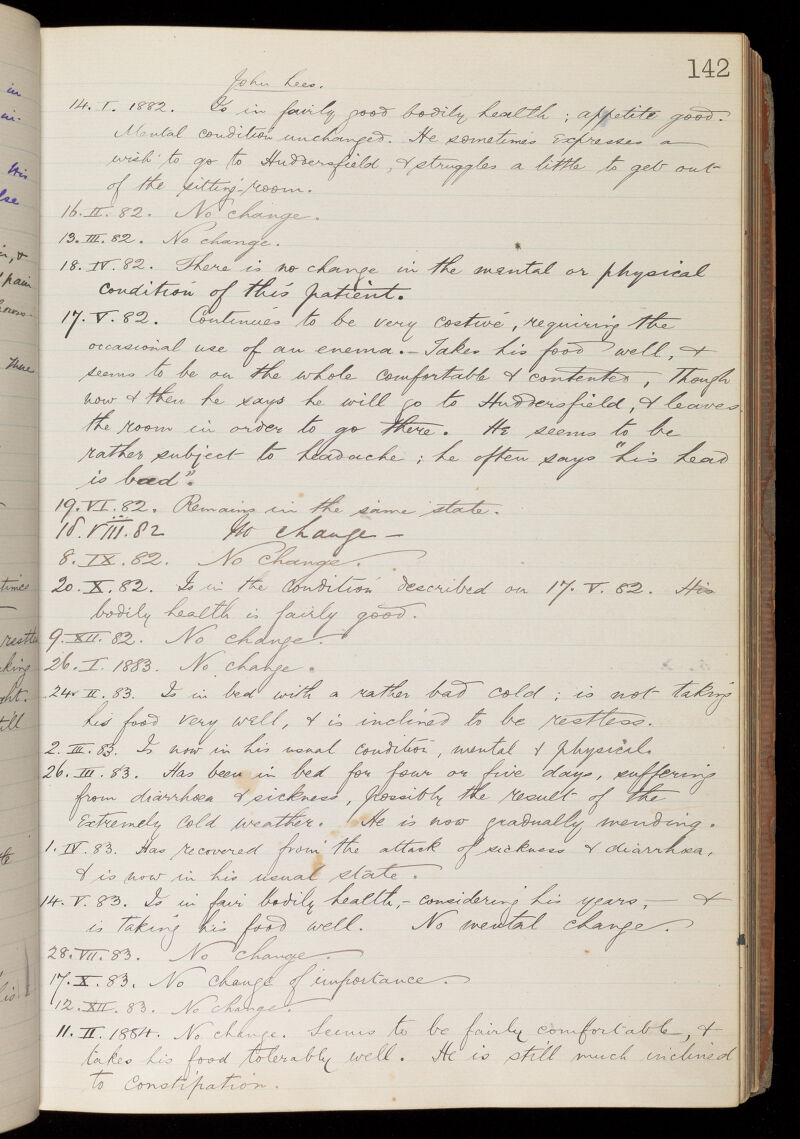 142
John Lees.
14. I. 1882. Is in fairly good bodily health; appetite good.
Mental condition unchanged. He sometimes expresses a
wish to go to Huddersfield, & struggles a little to get out
of the sitting-room.
16. II. 82. No change.
13. III. 82. No change.
18. IV. 82. There is no change in the mental or physical
condition of this patient.
17. V. 82. Continues to be very costive, requiring the
occasional use of an enema. – Takes his food well, &
seems to be on the whole comfortable & contented, though
now & then he says he will go to Huddersfield, & leaves
the room in order to go there. He seems to be
rather subject to headache; he often says "his head
is bad".
19. VI. 82. Remains in the same state.
18. VIII. 82 No change –
8. IX. 82. No change.
20. X. 82. Is in the condition described on 17. V. 82. His
bodily health is fairly good.
9. XII. 82. No change.
26. I. 1883. No change.
24. II. 83. Is in bed with a rather bad cold; is not taking
his food very well, & is inclined to be restless.
2. III. 83. Is now in his usual condition, mental & physical.
26. III. 83. Has been in bed for four or five days, suffering
from diarrhœa & sickness, possibly the result of the
extremely cold weather. He is now gradually mending.
1. IV. 83. Has recovered from the attack of sickness & diarrhœa,
& is now in his usual state.
14. V. 83. Is in fair bodily health, – considering his years, – &
is taking his food well. No mental change.
28. VII. 83. No change.
17. X. 83. No change of importance.
12. XII. 83. No change.
11. II. 1884. No change. Seems to be fairly comfortable, &
takes his food tolerably well. He is still much inclined
to constipation.